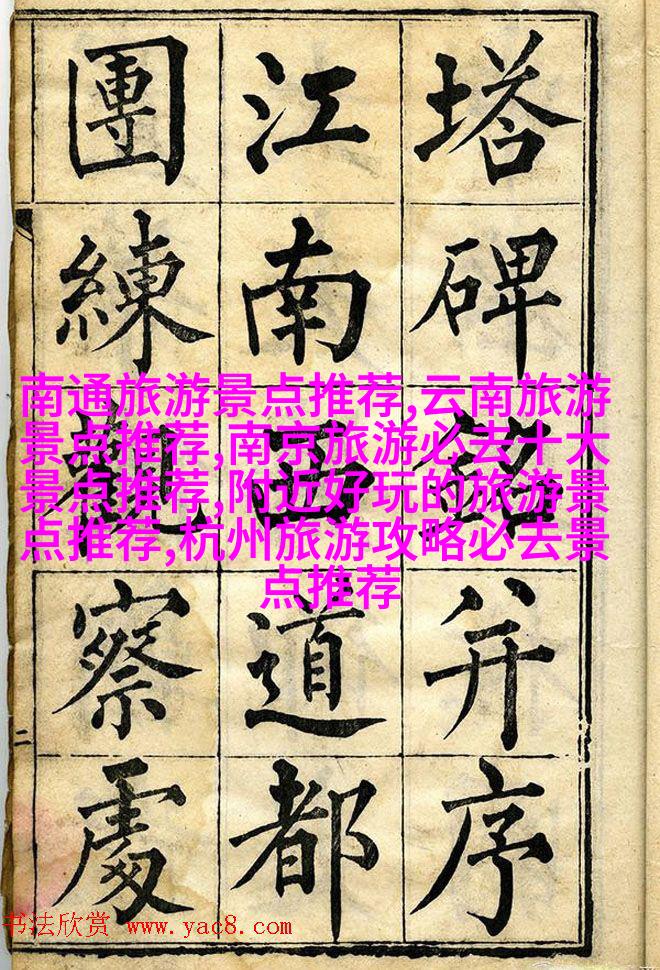 塔碑銘并序
江南西道都
團練觀察處
二
南通旅游景点推荐,云南旅游
景点推荐,南京旅游必去十大
景点推荐,附近好玩的旅游景
点推荐,杭州旅游攻略必去景
点推荐
书法欣赏 www.yac8.com